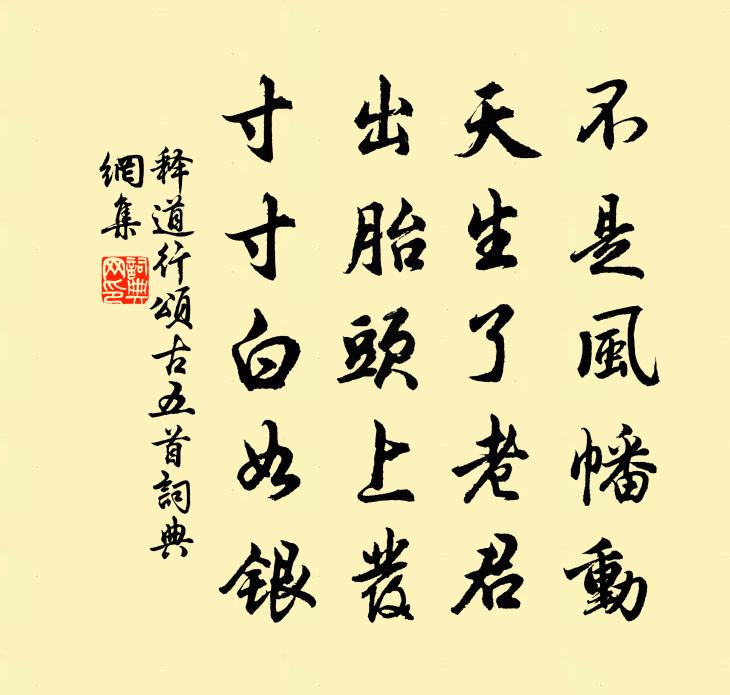 不是風幡動
天生了老君
出胎頭上發
寸寸白如銀
释道行頌古五首詞典
網集
詞典
网印